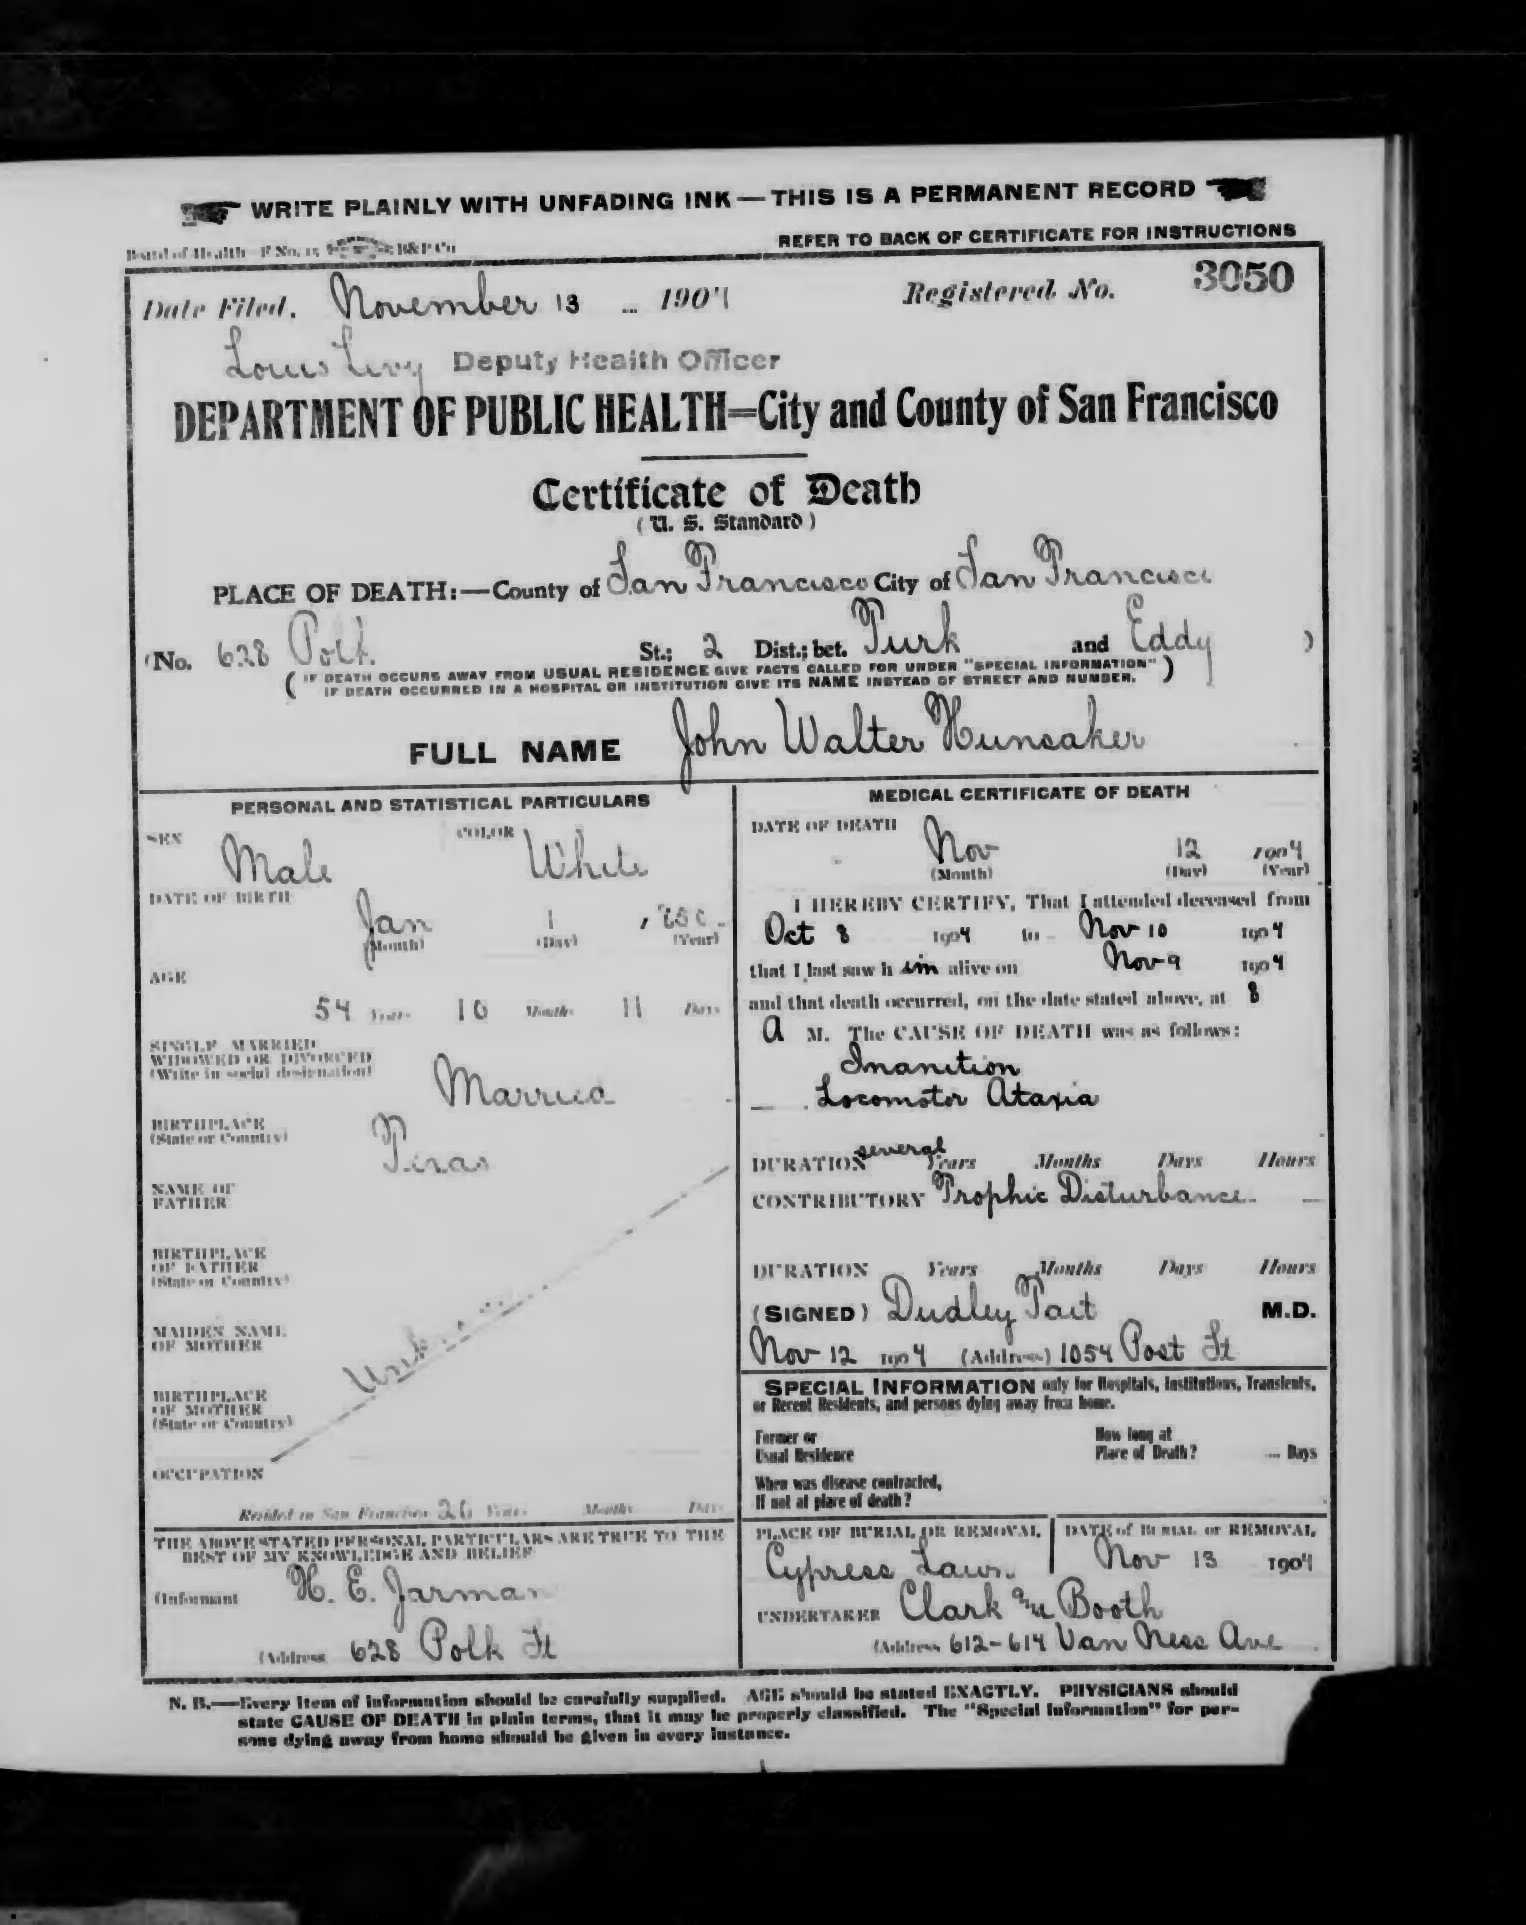 WRITE PLAINLY WITH UNFADING INK — THIS IS A PERMANENT RECORD
Board of Health—F No. 15 B&P Co
REFER TO BACK OF CERTIFICATE FOR INSTRUCTIONS
Date Filed, November 13 1904
Registered No. 3050
Louis Levy Deputy Health Officer
DEPARTMENT OF PUBLIC HEALTH=City and County of San Francisco
Certificate of Death
( U. S. Standard )
PLACE OF DEATH:—County of San Francisco City of San Francisco
(No. 628 Polk St.; 2 Dist.; bet. Turk and Eddy )
( IF DEATH OCCURS AWAY FROM USUAL RESIDENCE GIVE FACTS CALLED FOR UNDER "SPECIAL INFORMATION" )
IF DEATH OCCURRED IN A HOSPITAL OR INSTITUTION GIVE ITS NAME INSTEAD OF STREET AND NUMBER.
FULL NAME John Walter Hunsaker
PERSONAL AND STATISTICAL PARTICULARS
SEX Male COLOR White
DATE OF BIRTH
Jan 1 , 850
(Month) (Day) (Year)
AGE
54 Years 10 Months 11 Days
SINGLE MARRIED
WIDOWED OR DIVORCED
(Write in social designation)
Married
BIRTHPLACE
(State or Country)
Texas
NAME OF
FATHER
BIRTHPLACE
OF FATHER
(State or Country)
MAIDEN NAME
OF MOTHER
BIRTHPLACE
OF MOTHER
(State or Country)
OCCUPATION
Resided in San Francisco 26 Years Months Days
THE ABOVE STATED PERSONAL PARTICULARS ARE TRUE TO THE
BEST OF MY KNOWLEDGE AND BELIEF
(Informant H. E. Jarman
(Address 628 Polk St
MEDICAL CERTIFICATE OF DEATH
DATE OF DEATH
Nov 12 1904
(Month) (Day) (Year)
I HEREBY CERTIFY, That I attended deceased from
Oct 8 1904 to Nov 10 1904
that I last saw h im alive on Nov 9 1904
and that death occurred, on the date stated above, at 8
A M. The CAUSE OF DEATH was as follows:
Inanition
Locomotor Ataxia
DURATION several Years Months Days Hours
CONTRIBUTORY Trophic Disturbance
DURATION Years Months Days Hours
(SIGNED) Dudley Tait M.D.
Nov 12 1904 (Address) 1054 Post St
SPECIAL INFORMATION only for Hospitals, Institutions, Transients,
or Recent Residents, and persons dying away from home.
Former or
Usual Residence
How long at
Place of Death? Days
When was disease contracted,
If not at place of death?
PLACE OF BURIAL OR REMOVAL
Cypress Lawn
DATE of BURIAL or REMOVAL
Nov 13 1904
UNDERTAKER Clark & Booth
(Address 612-614 Van Ness Ave
N. B.—Every item of information should be carefully supplied. AGE should be stated EXACTLY. PHYSICIANS should
state CAUSE OF DEATH in plain terms, that it may be properly classified. The "Special Information" for per-
sons dying away from home should be given in every instance.